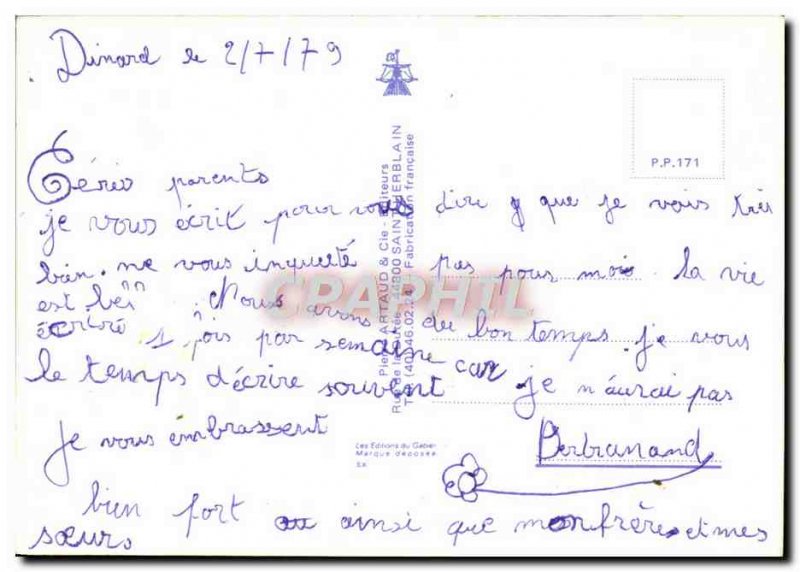 Dinard le 2/7/79
P.P.171
parents
je vous écrit pour vous dire que je vais très
bien. ne vous inquieté pas pour moi. la vie
est
Nous avons du bon temps. je vous
écriré 1 fois par semaine car je n'aurai pas
le temps d'écrire souvent
je vous embrassent Berbranand
bien fort ainsi que mon frère et mes
sœurs
Pierre ARTAUD & Cie - Editeurs
44800 SAINT-HERBLAIN
Fabrication française
Les Editions du Gabier
Marque déposée
CPAPHIL